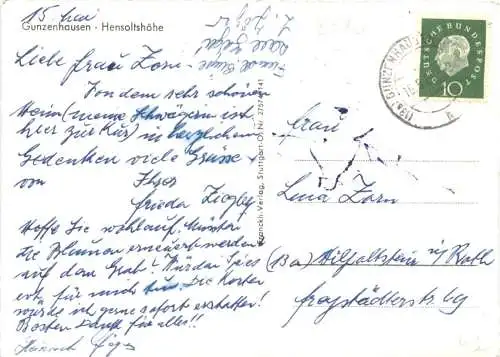 15. Mai
Gunzenhausen - Hensoltshöhe
Liebe Frau Zorn -
Von dem sehr schönen
Heim (meine Schwägerin ist
hier zur Kur) in herzlichem
Gedenken viele Grüsse
von Ihrer
Frieda Ziegler
Hoffe Sie wohlauf. Müssten
die Blumen erneuert werden
auf dem Grab? Würden Sie es
für mich tun. Die Kosten
würde ich gerne sofort erstatten!
Besten Dank für alles!!
Franckh-Verlag, Stuttgart-O, Nr.
DEUTSCHE BUNDESPOST
10
(13a) GUNZENHAUSEN
h
Frau
Lina Zorn
(13a) Hilpoltstein i/ Roth
Freystädterstr. 69